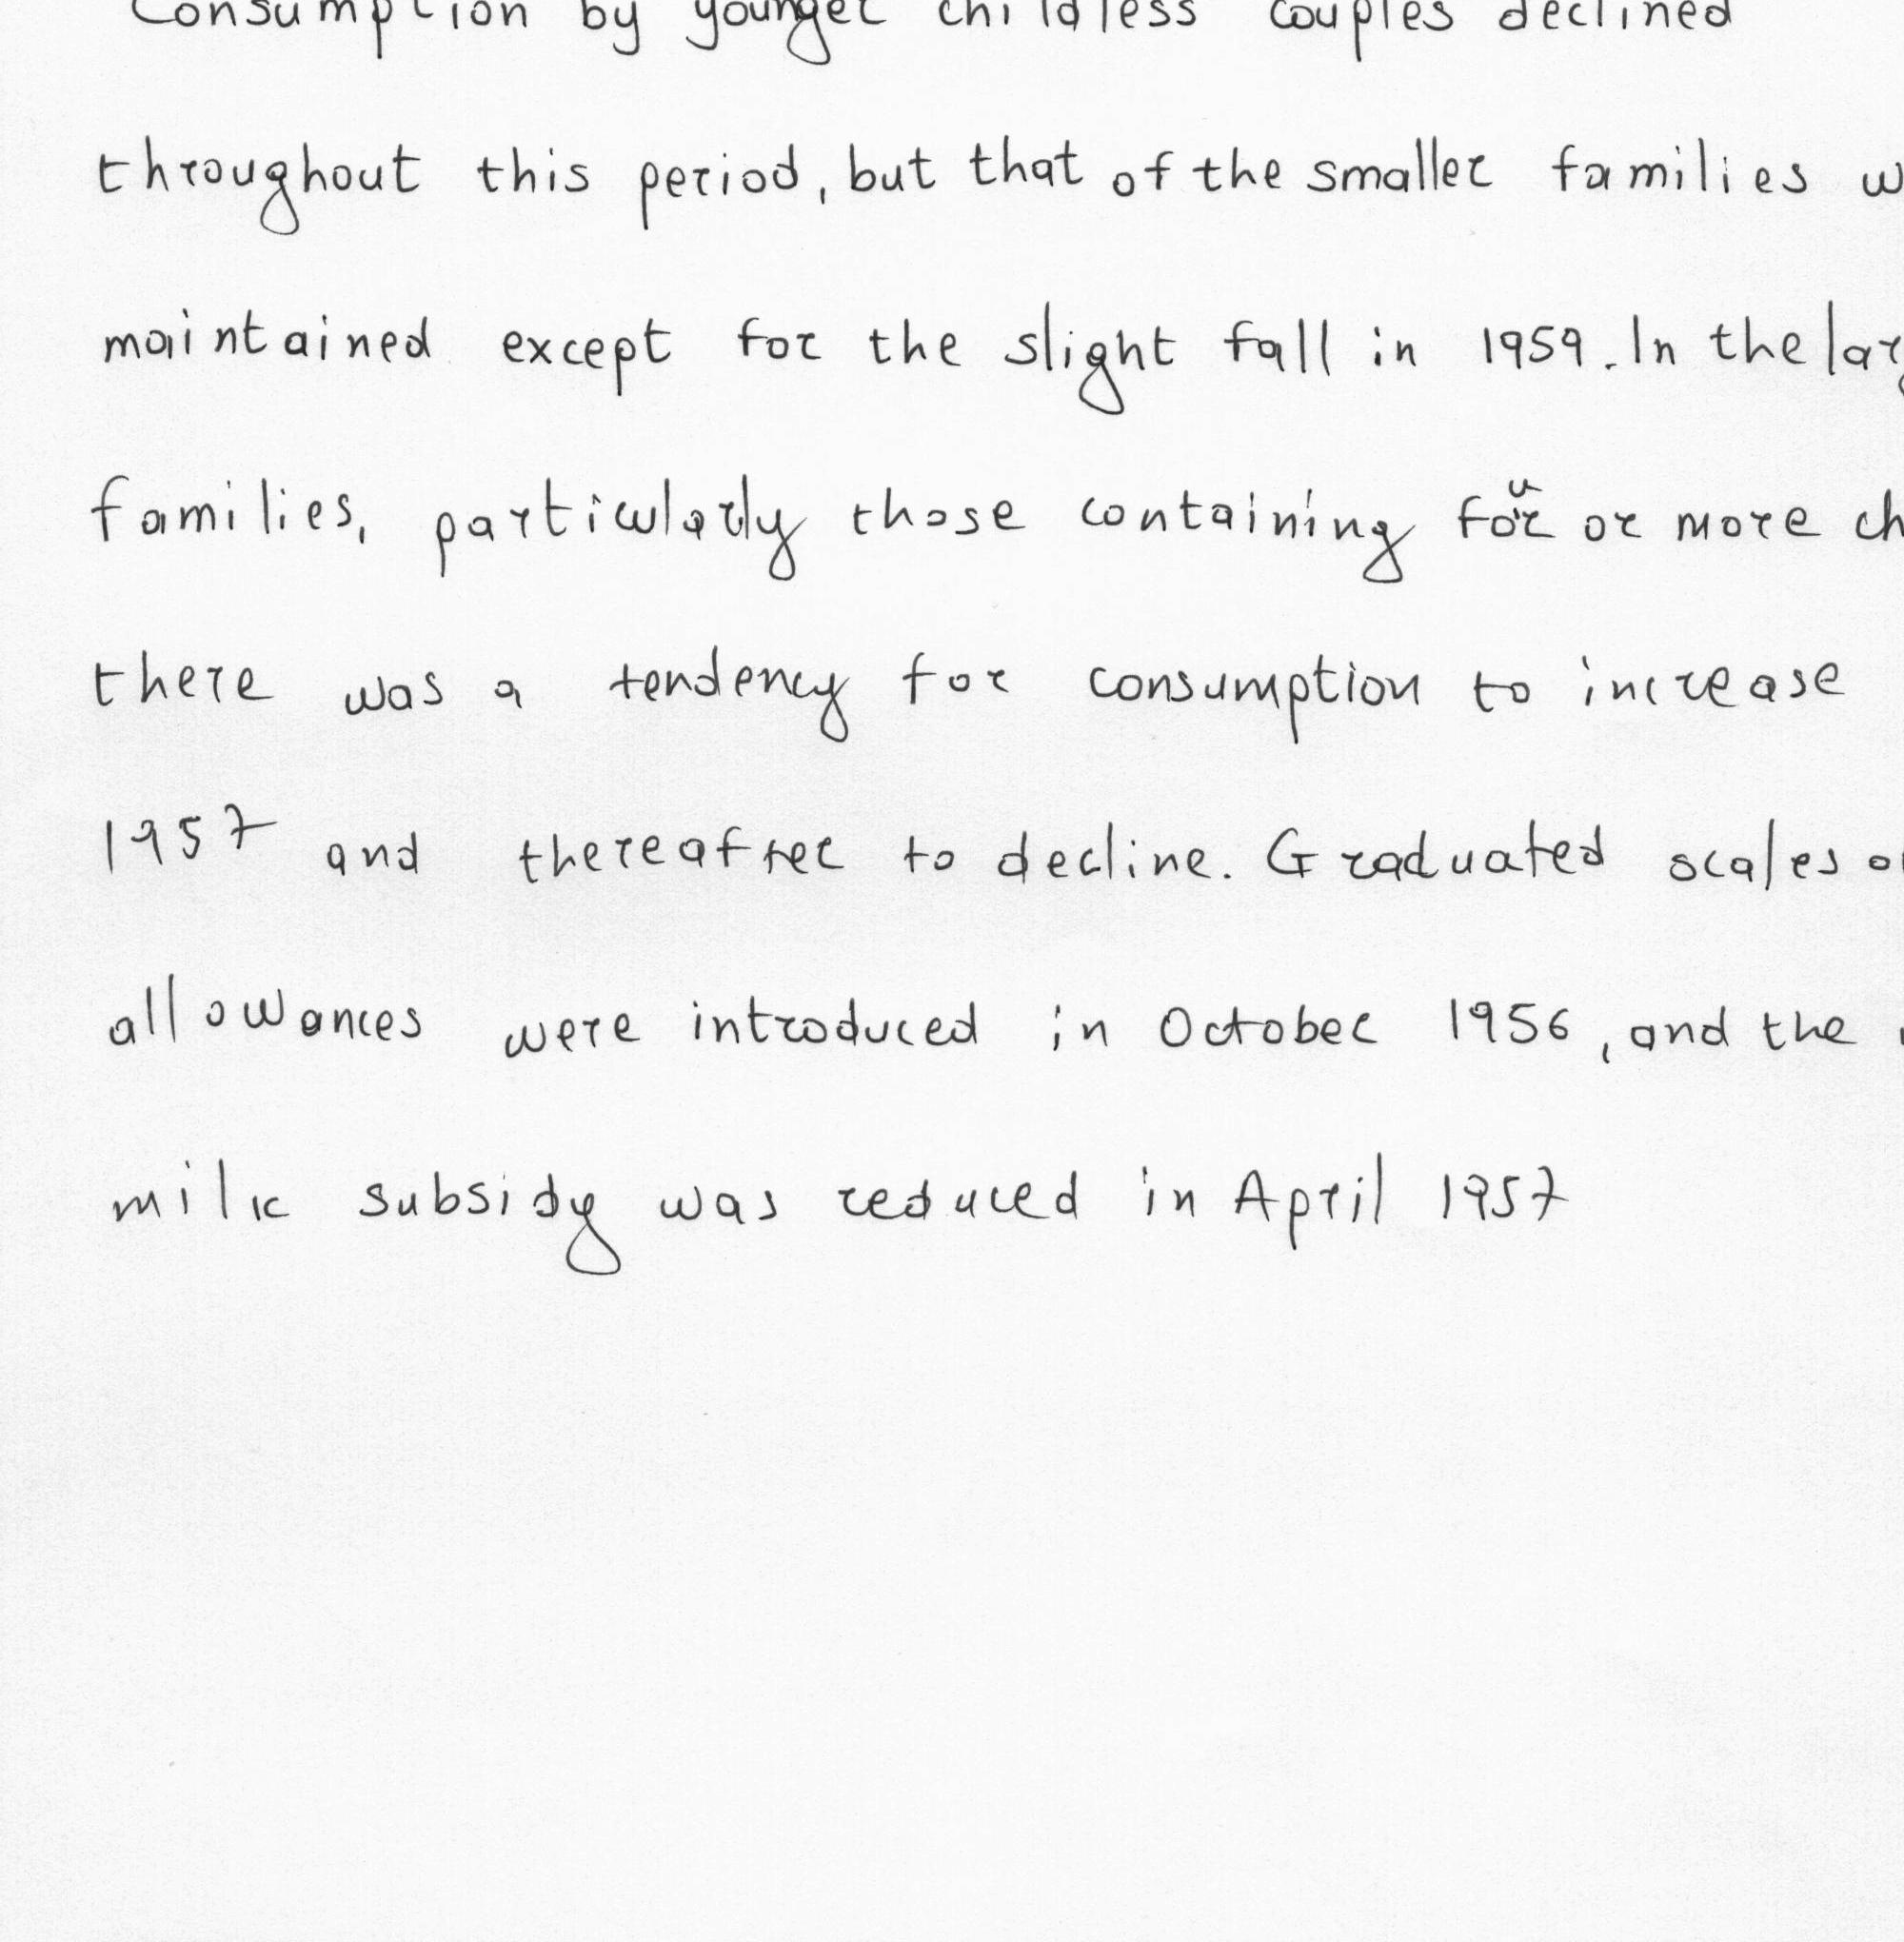 Consumption by younger childless couples declined
throughout this period, but that of the smaller families
maintained except for the slight fall in 1959. In the
families, particularly those containing four or more
there was a tendency for consumption to increase
1957 and thereafter to decline. Graduated scales
allowances were introduced in October 1956, and the
milk subsidy was reduced in April 1957